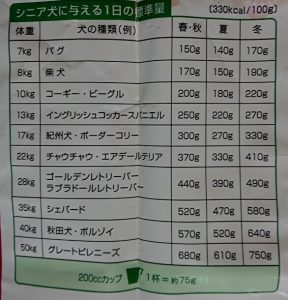 シニア犬に与える1日の標準量 (330kcal/100g)
体重 犬の種類(例) 春・秋 夏 冬
7kg パグ 150g 140g 170g
8kg 柴犬 170g 150g 190g
10kg コーギー・ビーグル 200g 180g 220g
13kg イングリッシュコッカースパニエル 250g 220g 270g
17kg 紀州犬・ボーダーコリー 300g 270g 330g
22kg チャウチャウ・エアデールテリア 370g 330g 410g
28kg ゴールデンレトリーバー ラブラドールレトリーバー 440g 390g 490g
35kg シェパード 520g 470g 580g
40kg 秋田犬・ボルゾイ 570g 520g 640g
50kg グレートピレニーズ 680g 610g 750g
200ccカップ 1杯=約75g